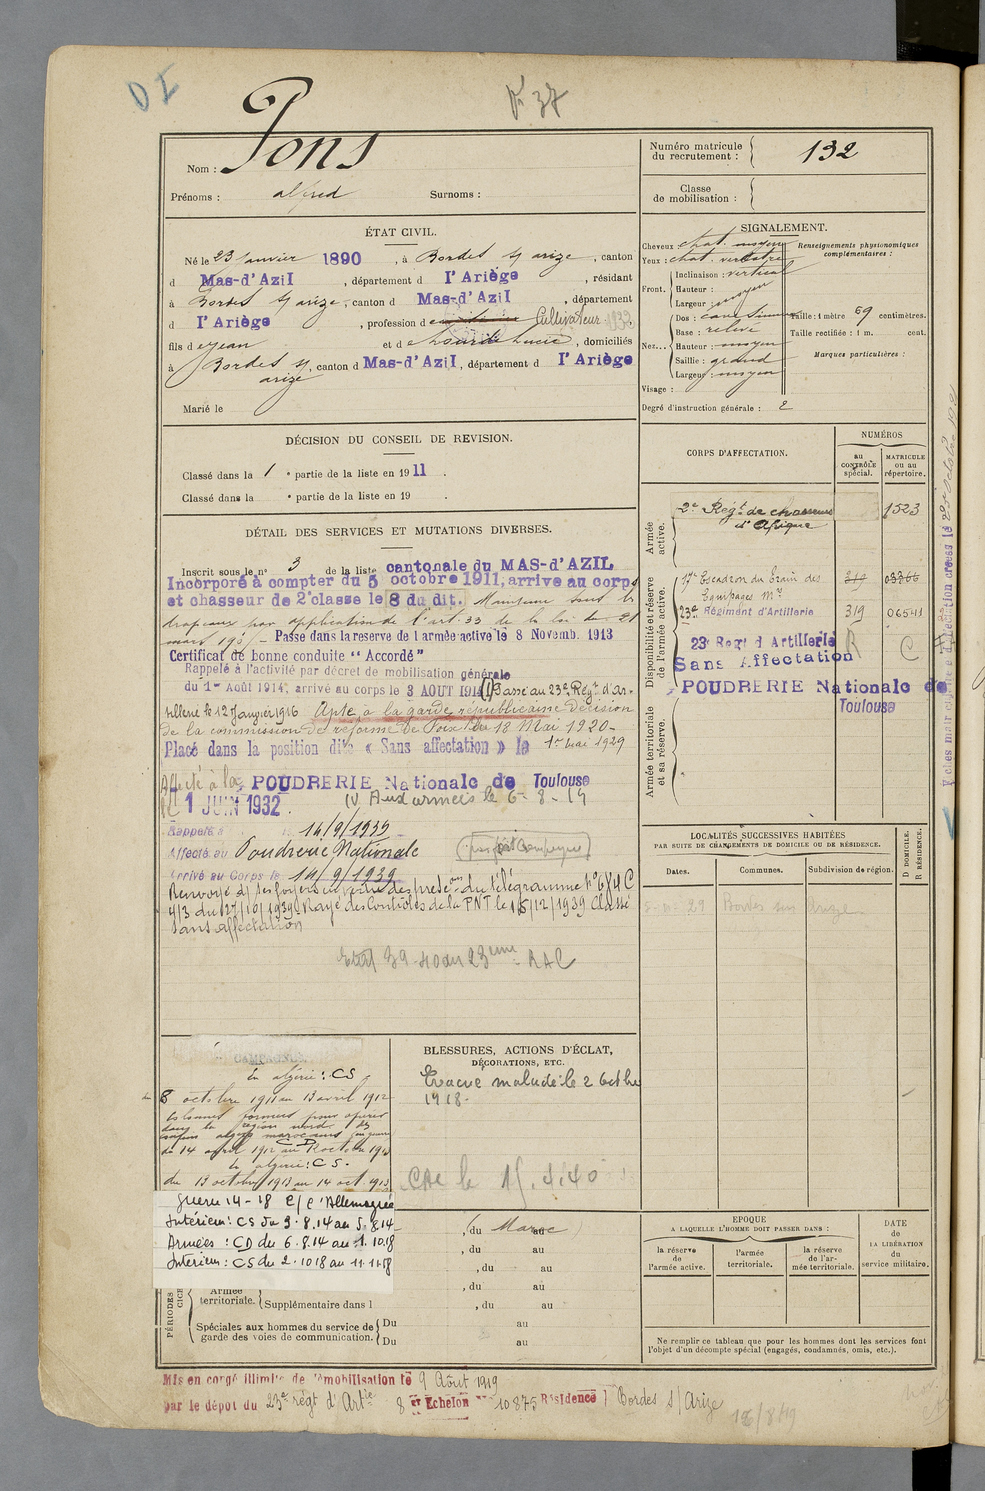 DI
F 37
Nom : Pons
Prénoms : alfred Surnoms :
Numéro matricule du recrutement : 132
Classe de mobilisation :
ÉTAT CIVIL.
Né le 23 janvier 1890, à Bordes s/ arize, canton
d Mas-d'Azil, département d l'Ariège, résidant
à Bordes s/ arize, canton d Mas-d'Azil, département
d l'Ariège, profession de Cultivateur 1932
fils de jean et de Lucie, domiciliés
à Bordes s/ arize, canton d Mas-d'Azil, département d l'Ariège
Marié le
SIGNALEMENT.
Cheveux : chat. moyen
Yeux : chat. verdatre
Front. Inclinaison : vertical
Hauteur : moyen
Largeur : moyen
Nez... Dos : cave sinueux
Base : relevé
Hauteur : moyen
Saillie : grand
Largeur : moyen
Visage :
Degré d'instruction générale : 2
Renseignements physionomiques complémentaires :
Taille : 1 mètre 69 centimètres.
Taille rectifiée : 1 m. cent.
Marques particulières :
DÉCISION DU CONSEIL DE REVISION.
Classé dans la 1e partie de la liste en 1911.
Classé dans la e partie de la liste en 19 .
DÉTAIL DES SERVICES ET MUTATIONS DIVERSES.
Inscrit sous le n° 3 de la liste cantonale du MAS-d'AZIL
Incorporé à compter du 5 octobre 1911, arrivé au corps
et chasseur de 2e classe le 8 du dit. Maintenu sous les
drapeaux par application de l'art. 33 de la loi du 21
mars 1905 - Passé dans la reserve de l'armée active le 8 Novemb. 1913
Certificat de bonne conduite "Accordé"
Rappelé à l'activité par décret de mobilisation générale
du 1er Août 1914, arrivé au corps le 3 AOUT 1914 (1) Passé au 23e Régt d'Ar-
tillerie le 12 Janvier 1916 Apte à la garde républicaine Décision
de la commission de réforme de Foix du 18 Mai 1920-
Placé dans la position dite « Sans affectation » le 1er Mai 1929
Affecté à la POUDRERIE Nationale de Toulouse
le 1 JUIN 1932. (1) Aux armées le 6-8-14
Rappelé 14/9/1939
Affecté au Poudrerie Nationale
Arrivé au Corps le 14/9/1939
Renvoyé ds ses foyers en vertu des prescons du télégramme N° 6414 C
4/3 du 27/10/1939. Rayé des Contrôles de la PNT le 15/12/1939 Classé
Sans affectation
39-40 du 23ème RAC
CORPS D'AFFECTATION.
NUMÉROS
au CONTRÔLE spécial.
MATRICULE ou au répertoire.
Armée active.
2e Régt de chasseurs d'Afrique 1523
Disponibilité et réserve de l'armée active.
17e Escadron du Train des Equipages Mres 319
23e Régiment d'Artillerie 319 06541
23e Régt d'Artillerie R C
Sans Affectation
POUDRERIE Nationale de Toulouse
Armée territoriale et sa réserve.
LOCALITÉS SUCCESSIVES HABITÉES
PAR SUITE DE CHANGEMENTS DE DOMICILE OU DE RÉSIDENCE.
Dates. Communes. Subdivision de région.
D DOMICILE.
R RÉSIDENCE.
29 Bordes sur Arize
CAMPAGNES.
En algérie : CS
8 octobre 1911 au 13 avril 1912
Colonnes formées pour opérer
dans la région nord des
confins algéro marocains
du 14 avril 1912 au 12 octobre 1913
En algérie : CS.
du 13 octobre 1913 au 14 oct. 1913
Guerre 14-18 C/ l'Allemagne
Intérieur : CS du 3.8.14 au 5.8.14
Armées : CD du 6.8.14 au 1.10.18
Intérieur : CS du 2.10.18 au 11.11.18
BLESSURES, ACTIONS D'ÉCLAT,
DÉCORATIONS, ETC.
Evacué malade le 2 octbre
1918-
le 15.4.40
, du Maroc au
, du au
, du au
, du au
PÉRIODES
Armée territoriale. Supplémentaire dans l , du au
Spéciales aux hommes du service de garde des voies de communication. Du au
Du au
EPOQUE
A LAQUELLE L'HOMME DOIT PASSER DANS :
la réserve de l'armée active.
l'armée territoriale.
la réserve de l'armée territoriale.
DATE de LA LIBÉRATION du service militaire.
Ne remplir ce tableau que pour les hommes dont les services font
l'objet d'un décompte spécial (engagés, condamnés, omis, etc.).
Mis en congé illimité de démobilisation le 9 Août 1919
par le dépôt du 23e régt d'Artie 8 er Echelon N° 10875 Résidence à Bordes s/ Arize